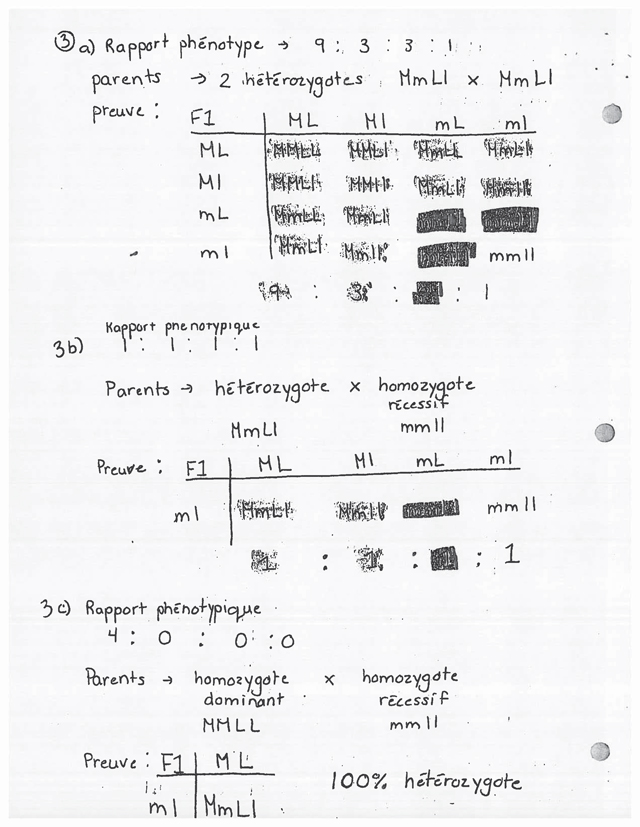 ③ a) Rapport phénotype → 9 : 3 : 3 : 1
parents → 2 hétérozygotes MmLl x MmLl
preuve :
F1 ML Ml mL ml
ML MMLL MMLl MmLL MmLl
Ml MMLl MMll MmLl Mmll
mL MmLL MmLl
ml MmLl Mmll mmll
9 : 3 : : 1
Rapport phénotypique
3b) 1 : 1 : 1 : 1
Parents → hétérozygote x homozygote
récessif
MmLl mmll
Preuve : F1 ML Ml mL ml
ml MmLl Mmll mmll
1 : 1 : : 1
3c) Rapport phénotypique
4 : 0 : 0 : 0
Parents → homozygote x homozygote
dominant récessif
MMLL mmll
Preuve : F1 ML
100% hétérozygote
ml MmLl